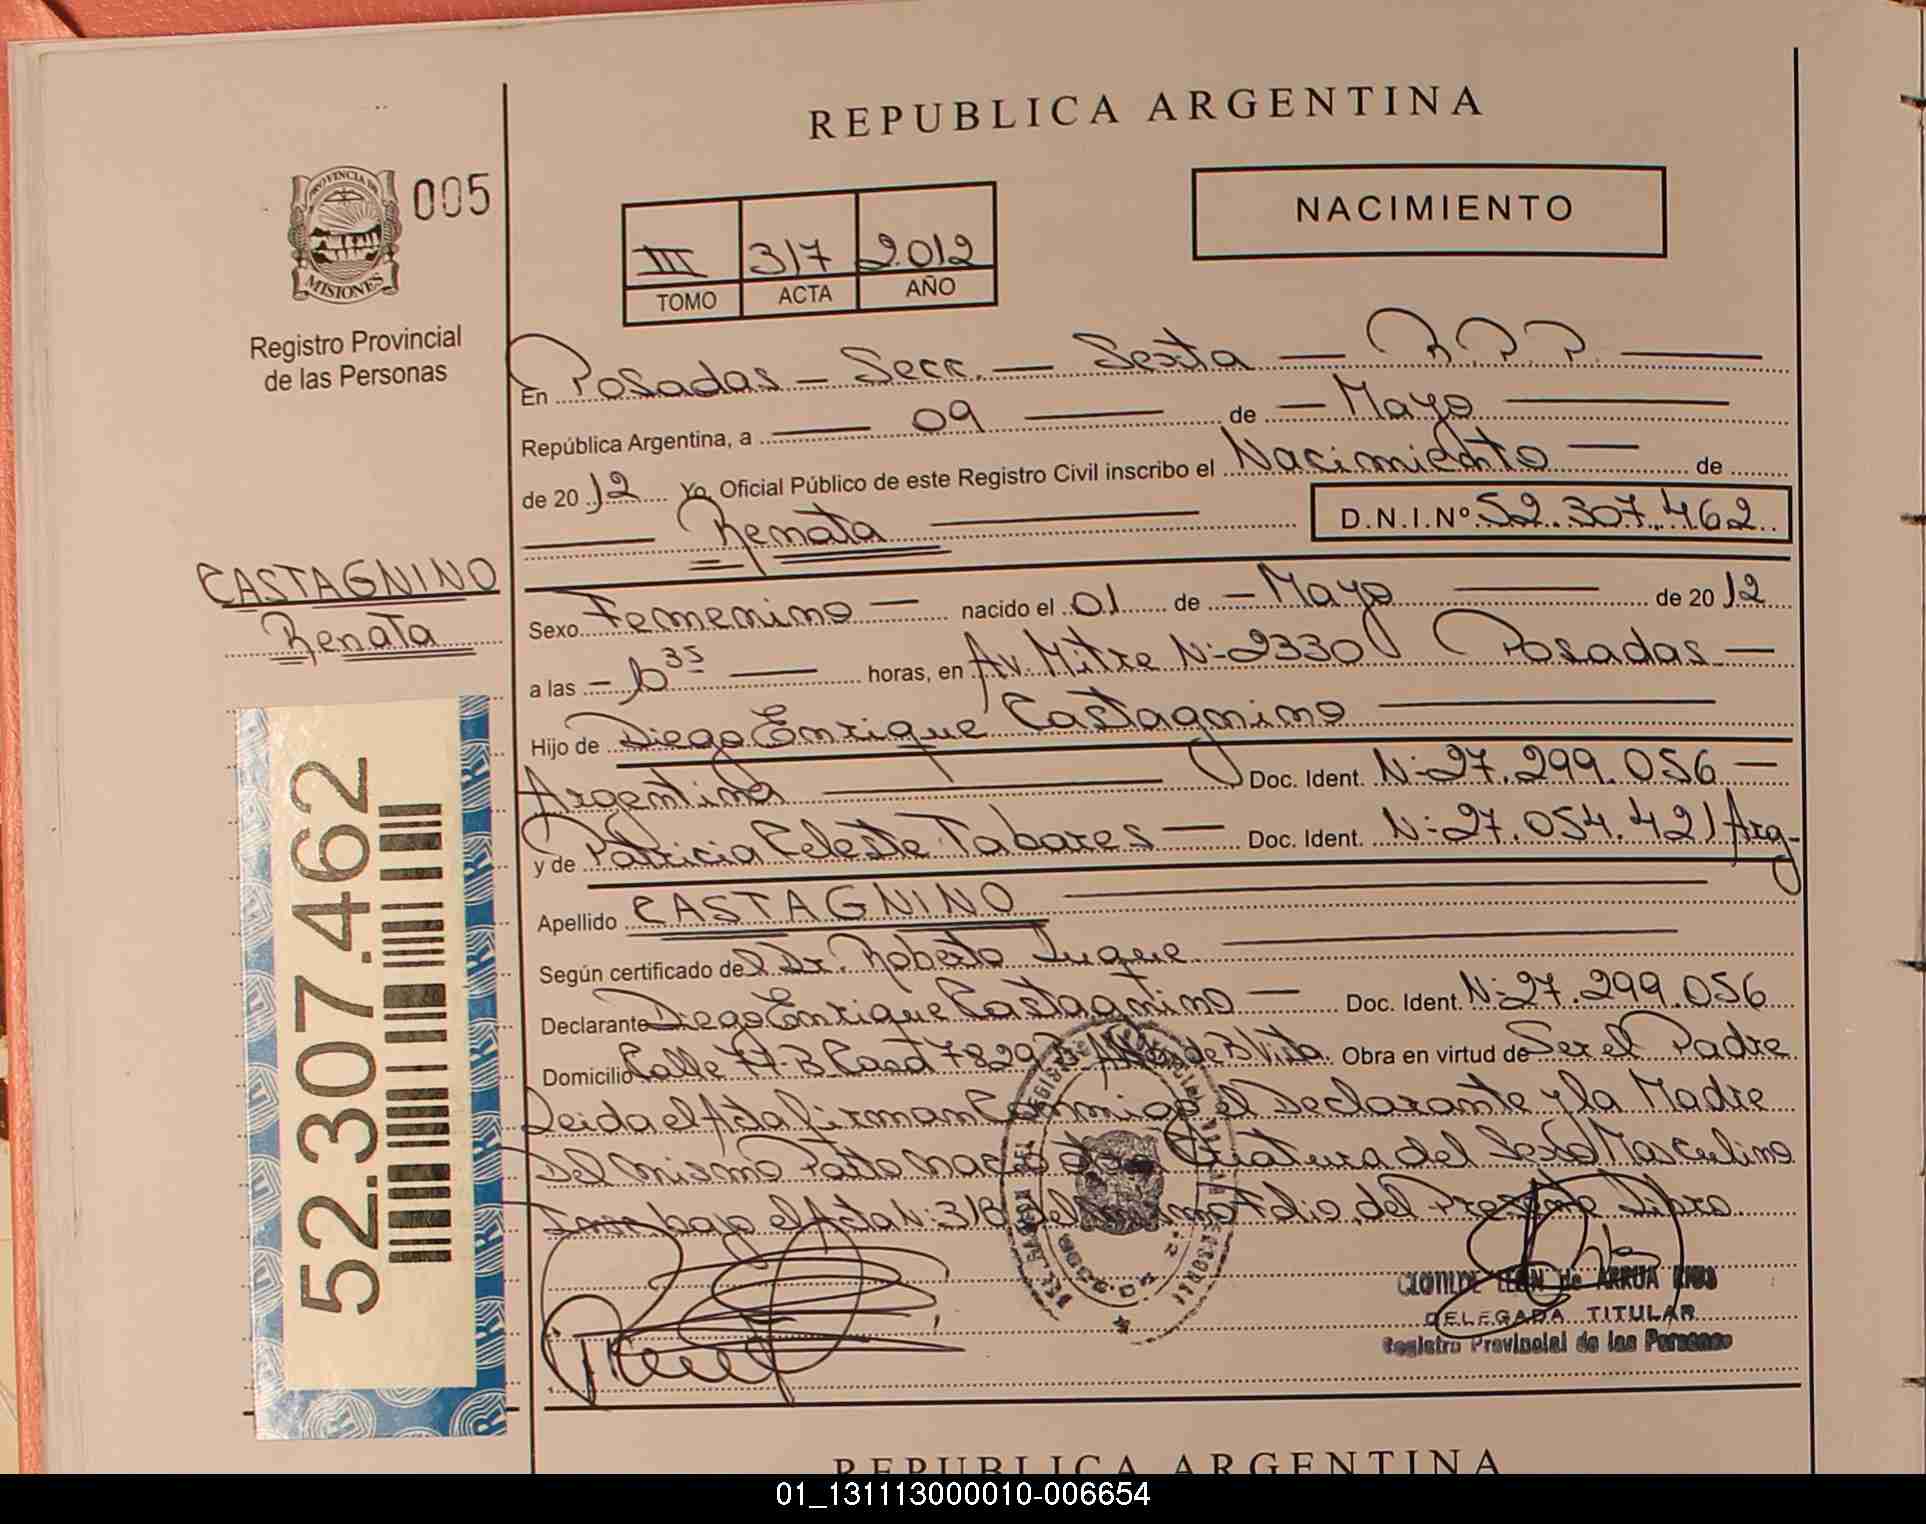 REPUBLICA ARGENTINA
PROVINCIA DE
MISIONES
005
Registro Provincial
de las Personas
NACIMIENTO
III 317 2012
TOMO ACTA AÑO
En Posadas - Secc. - Sexta - R.P.P.
República Argentina, a 09 de - Mayo
de 2012 Yo, Oficial Público de este Registro Civil inscribo el Nacimiento de
Renata D.N.I.Nº 52.307.462
CASTAGNINO
Renata
Sexo Femenino - nacido el 01 de - Mayo de 2012
a las - 10 35 horas, en Av. Mitre N:-2330 Posadas -
Hijo de Diego Enrique Castagnino
Argentina Doc. Ident. N:-27.299.056 -
y de Patricia Celeste Tabares - Doc. Ident. N:-27.054.421 Arg-
Apellido CASTAGNINO
Según certificado del Dr. Roberto Luque
Declarante Diego Enrique Castagnino - Doc. Ident. N:-27.299.056
Domicilio Calle 77-B Casa 7829 B. Vista. Obra en virtud de Ser el Padre
Leida el Acta firman Conmigo el Declarante y la Madre
Del mismo Parto nacio otra Criatura del Sexo Masculino
bajo el Acta N:318 del mismo Folio del Presente Libro.
52.307.462
CLOTILDE LEON de ARRUA RIOS
DELEGADA TITULAR
Registro Provincial de las Personas
REPUBLICA ARGENTINA
01_131113000010-006654